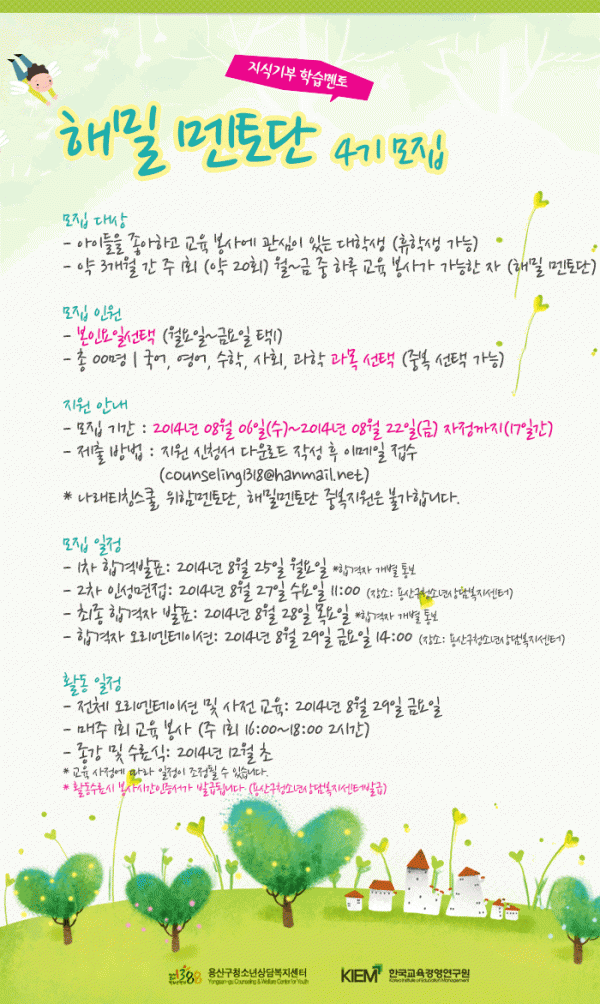 지식기부 학습멘토
해밀 멘토단 4기 모집
모집 대상
- 아이들을 좋아하고 교육 봉사에 관심이 있는 대학생 (휴학생 가능)
- 약 3개월 간 주 1회 (약 20회) 월~금 중 하루 교육 봉사가 가능한 자 (해밀 멘토단)
모집 인원
- 본인요일선택 (월요일~금요일 택1)
- 총 00명 | 국어, 영어, 수학, 사회, 과학 과목 선택 (중복 선택 가능)
지원 안내
- 모집 기간 : 2014년 08월 06일(수)~2014년 08월 22일(금) 자정까지(17일간)
- 제출 방법 : 지원 신청서 다운로드 작성 후 이메일 접수
(counseling1318@hanmail.net)
* 나래티칭스쿨, 위함멘토단, 해밀멘토단 중복지원은 불가합니다.
모집 일정
- 1차 합격발표: 2014년 8월 25일 월요일 *합격자 개별 통보
- 2차 인성면접: 2014년 8월 27일 수요일 11:00 (장소: 용산구청소년상담복지센터)
- 최종 합격자 발표: 2014년 8월 28일 목요일 *합격자 개별 통보
- 합격자 오리엔테이션: 2014년 8월 29일 금요일 14:00 (장소: 용산구청소년상담복지센터)
활동 일정
- 전체 오리엔테이션 및 사전 교육: 2014년 8월 29일 금요일
- 매주 1회 교육 봉사 (주 1회 16:00~18:00 2시간)
- 종강 및 수료식: 2014년 12월 초
* 교육 사정에 따라 일정이 조정될 수 있습니다.
* 활동수료시 봉사시간인증서가 발급됩니다 (용산구청소년상담복지센터발급)
1388 용산구청소년상담복지센터
Yongsan-gu Counseling & Welfare Center for Youth
KIEM 한국교육경영연구원
Korea Institute of Education & Management